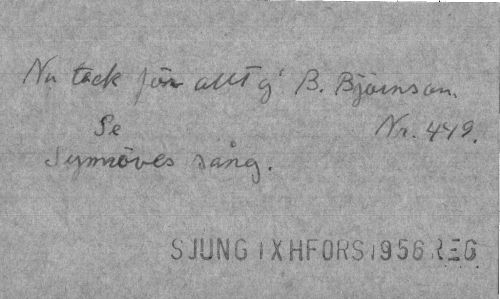 Nu tack för allt g' B. Björnson.
Se Nr. 449.
Synnöves sång.
SJUNG IXHFORS1956REG